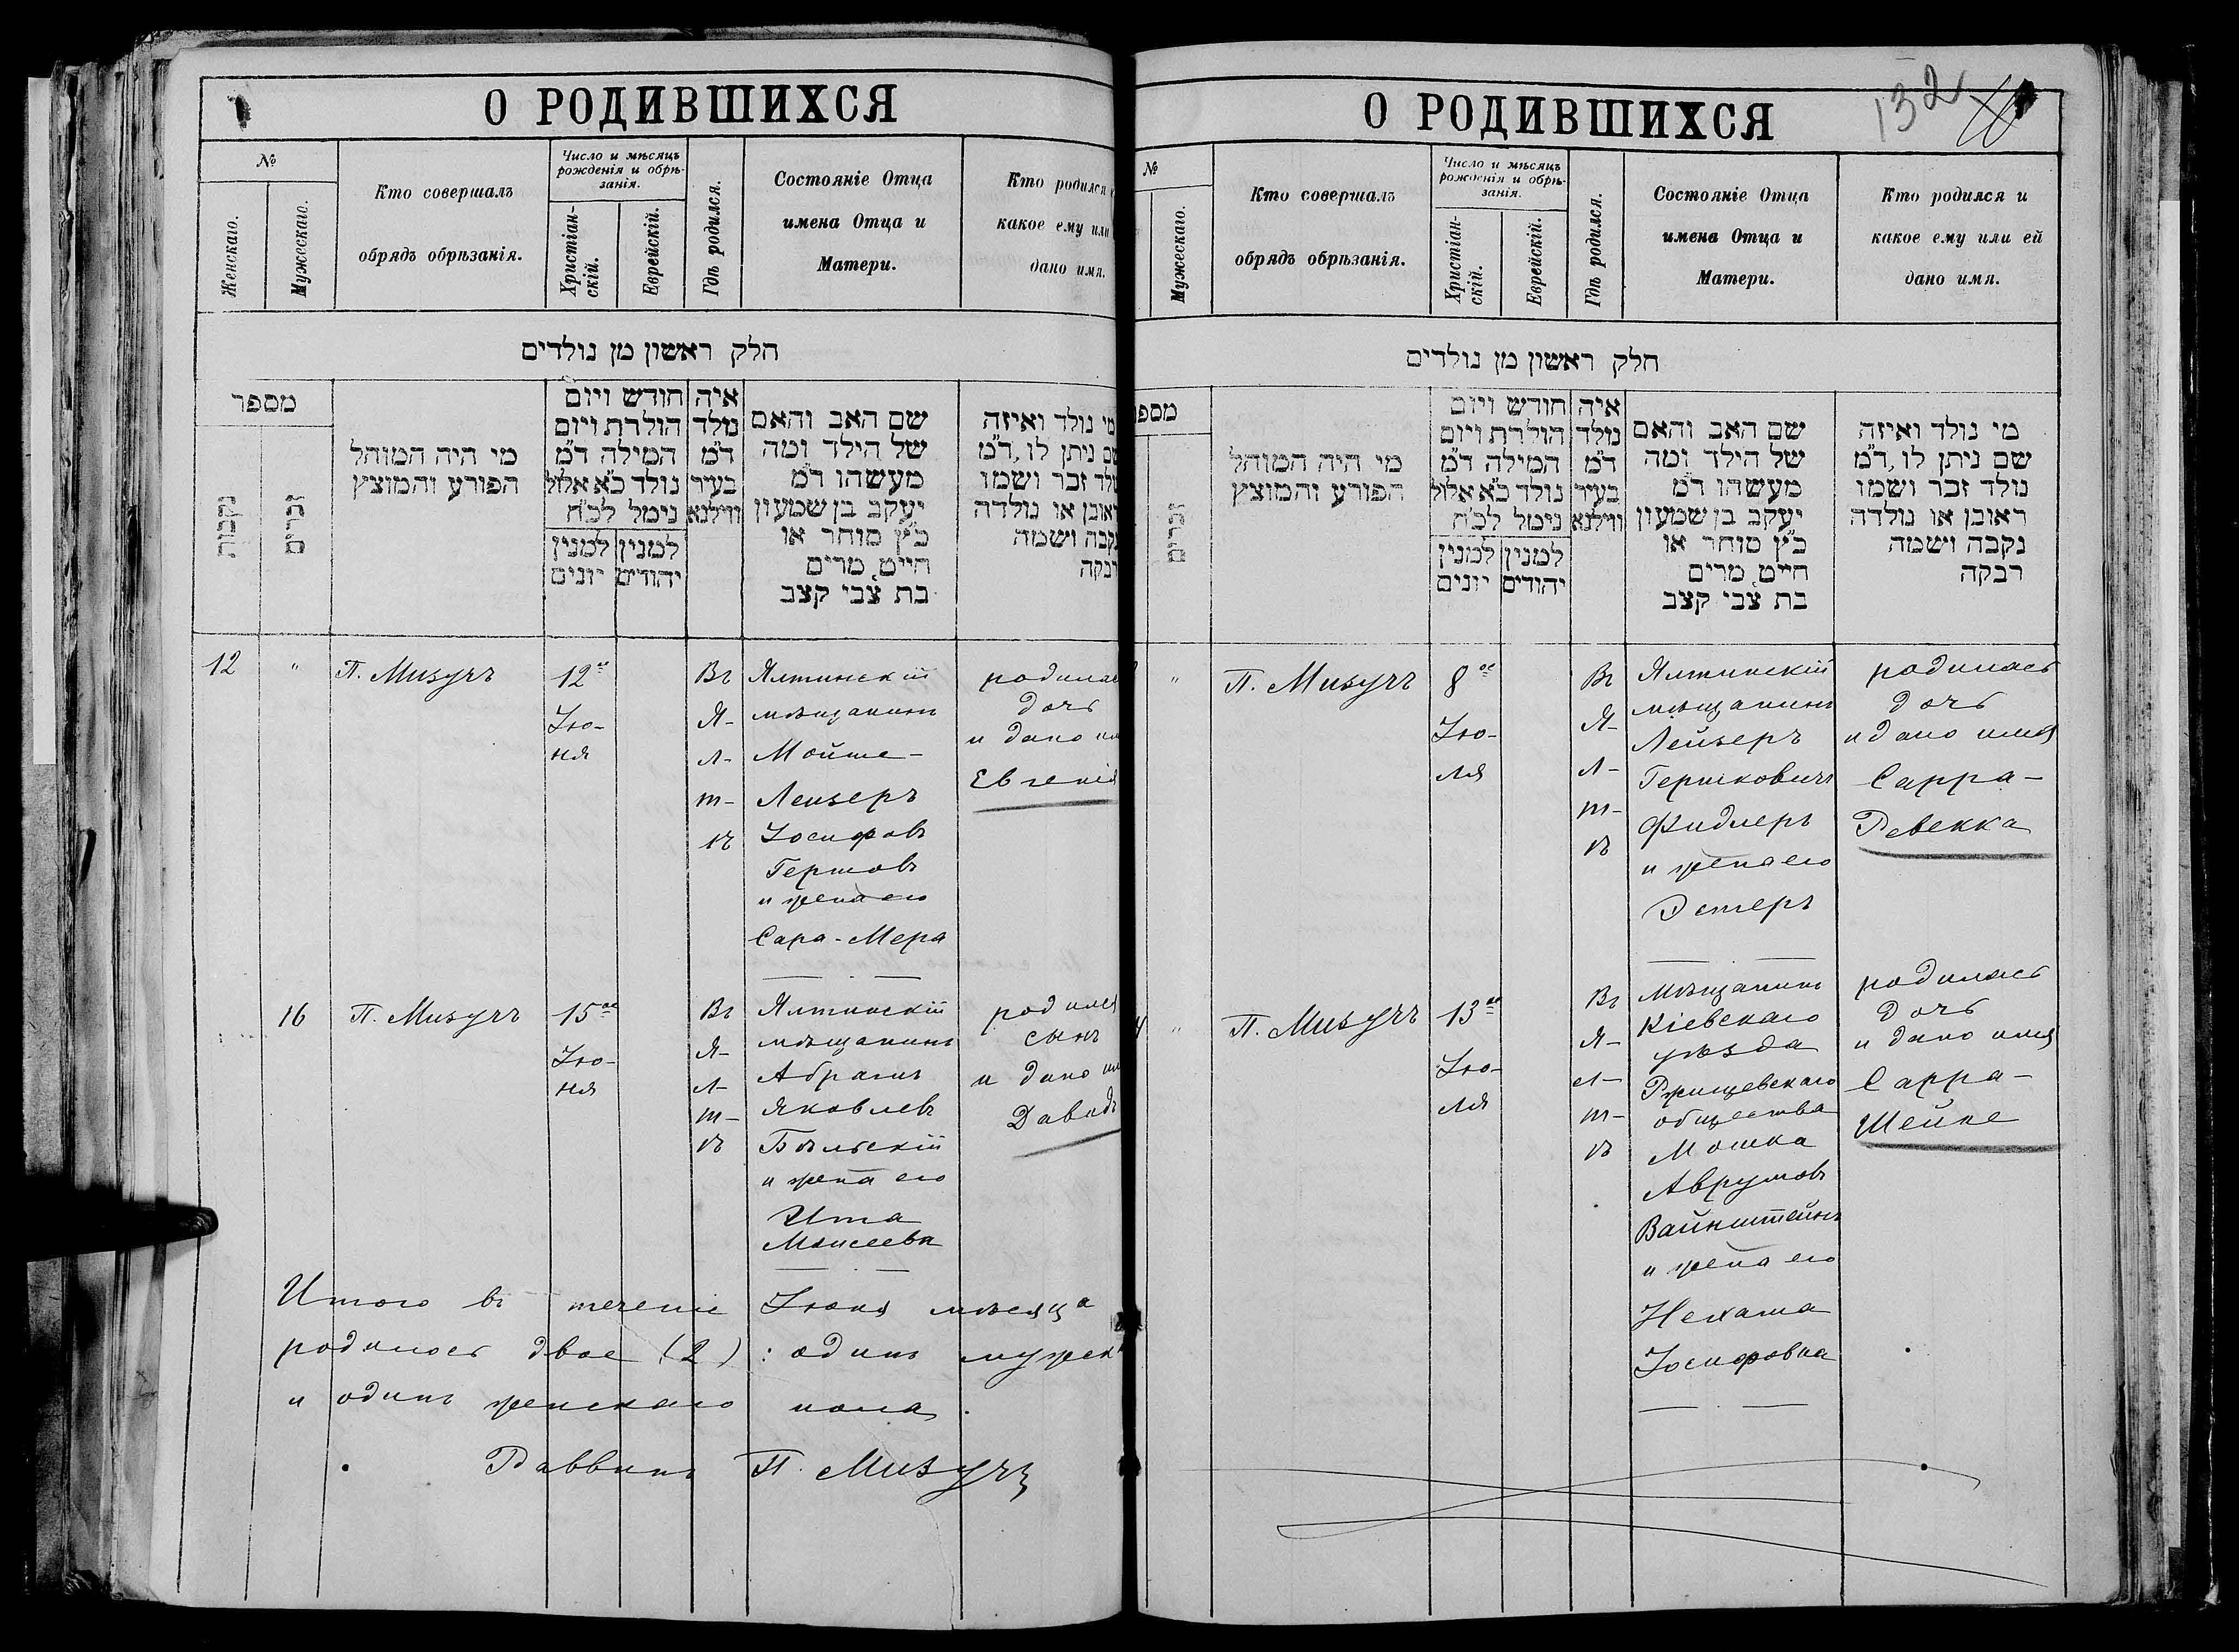 О РОДИВШИХСЯ
№
Женскаго.
Мужескаго.
Кто совершалъ
обрядъ обрѣзанія.
Число и мѣсяцъ
рожденія и обрѣ-
занія.
Христіан-
скій.
Еврейскій.
Гдѣ родился.
Состояніе Отца
имена Отца и
Матери.
Кто родился
какое ему или
дано имя.
חלק ראשון מן נולדים
מספר
נקבות
זכרים
מי היה המוהל
הפורע והמוצץ
חודש ויום
הולדת ויום
המילה ד״מ
נולד כ״א אלול
נימל לכ״ח
למנין יהודים
למנין יונים
איה
נולד
ד״מ
בעיר
ווילנא
שם האב והאם
של הילד ומה
מעשהו ד״מ
יעקב בן שמעון
כ״ץ סוחר או
חייט, מרים
בת צבי קצב
מי נולד ואיזה
שם ניתן לו, ד״מ
נולד זכר ושמו
ראובן או נולדה
נקבה ושמה
12 " П. Мизучъ
12го
Iю-
ня
Въ
Я-
л-
т-
ѣ
Ялтинскій
мѣщанинъ
Мойше-
Лейзеръ
Іосифовъ
Гершовъ
и жена его
Сара-Мера
родилась
дочь
и дано им
Евгенія
16 П. Мизучъ
15го
Iю-
ня
Въ
Я-
л-
т-
ѣ
Ялтинскій
мѣщанинъ
Абрамъ
Яковлевъ
Бѣльскій
и жена его
Ита
Моисеева
родился
сынъ
и дано им
Давидъ
Итого въ теченіе Іюня мѣсяца
родилось двое (2) : одинъ мужск
и одинъ женскаго пола.
Раввинъ П. Мизучъ
132
О РОДИВШИХСЯ
№
Мужескаго.
Кто совершалъ
обрядъ обрѣзанія.
Число и мѣсяцъ
рожденія и обрѣ-
занія.
Христіан-
скій.
Еврейскій.
Гдѣ родился.
Состояніе Отца
имена Отца и
Матери.
Кто родился и
какое ему или ей
дано имя.
חלק ראשון מן נולדים
מספר
זכרים
מי היה המוהל
הפורע והמוצץ
חודש ויום
הולדת ויום
המילה ד״מ
נולד כ״א אלול
נימל לכ״ח
למנין יהודים
למנין יונים
איה
נולד
ד״מ
בעיר
ווילנא
שם האב והאם
של הילד ומה
מעשהו ד״מ
יעקב בן שמעון
כ״ץ סוחר או
חייט, מרים
בת צבי קצב
מי נולד ואיזה
שם ניתן לו, ד״מ
נולד זכר ושמו
ראובן או נולדה
נקבה ושמה
רבקה
" П. Мизучъ
8го
Iю-
ля
Въ
Я-
л-
т-
ѣ
Ялтинскій
мѣщанинъ
Лейзеръ
Гершковичъ
Фидлеръ
и жена его
Эстеръ
родилась
дочь
и дано имя
Сарра-
Ревекка
" П. Мизучъ
13го
Iю-
ля
Въ
Я-
л-
т-
ѣ
Мѣщанинъ
Кіевскаго
уѣзда
Ржищевскаго
общества
Мошка
Аврумовъ
Вайнштейнъ
и жена его
Нехама
Іосифовна
родилась
дочь
и дано имя
Сарра-
Шейне